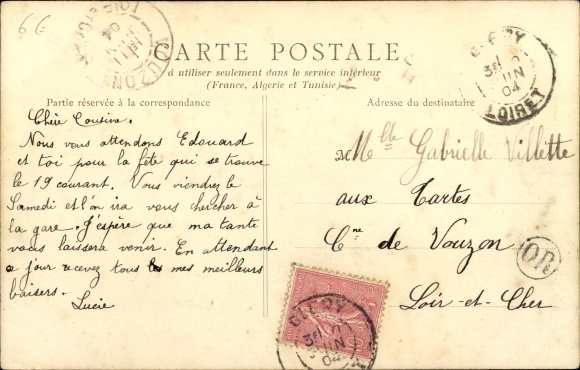 66
CARTE POSTALE
à utiliser seulement dans le service intérieur
(France, Algérie et Tunisie)
Partie réservée à la correspondance
Adresse du destinataire
Chère Cousine.
Nous vous attendons Edouard
et toi pour la fête qui se trouve
le 19 courant. Vous viendrez le
Samedi et l'on ira vous chercher à
la gare. J'espère que ma tante
vous laissera venir. En attendant
ce jour recevez tous mes meilleurs
baisers.
Lucie
Mlle Gabrielle Villette
aux Tartes
Cne de Vouzon
Loir-et-Cher
OR
CLERY
JUIN
04
LOIRET
VOUZON
04
CLERY
JUIN
04
10